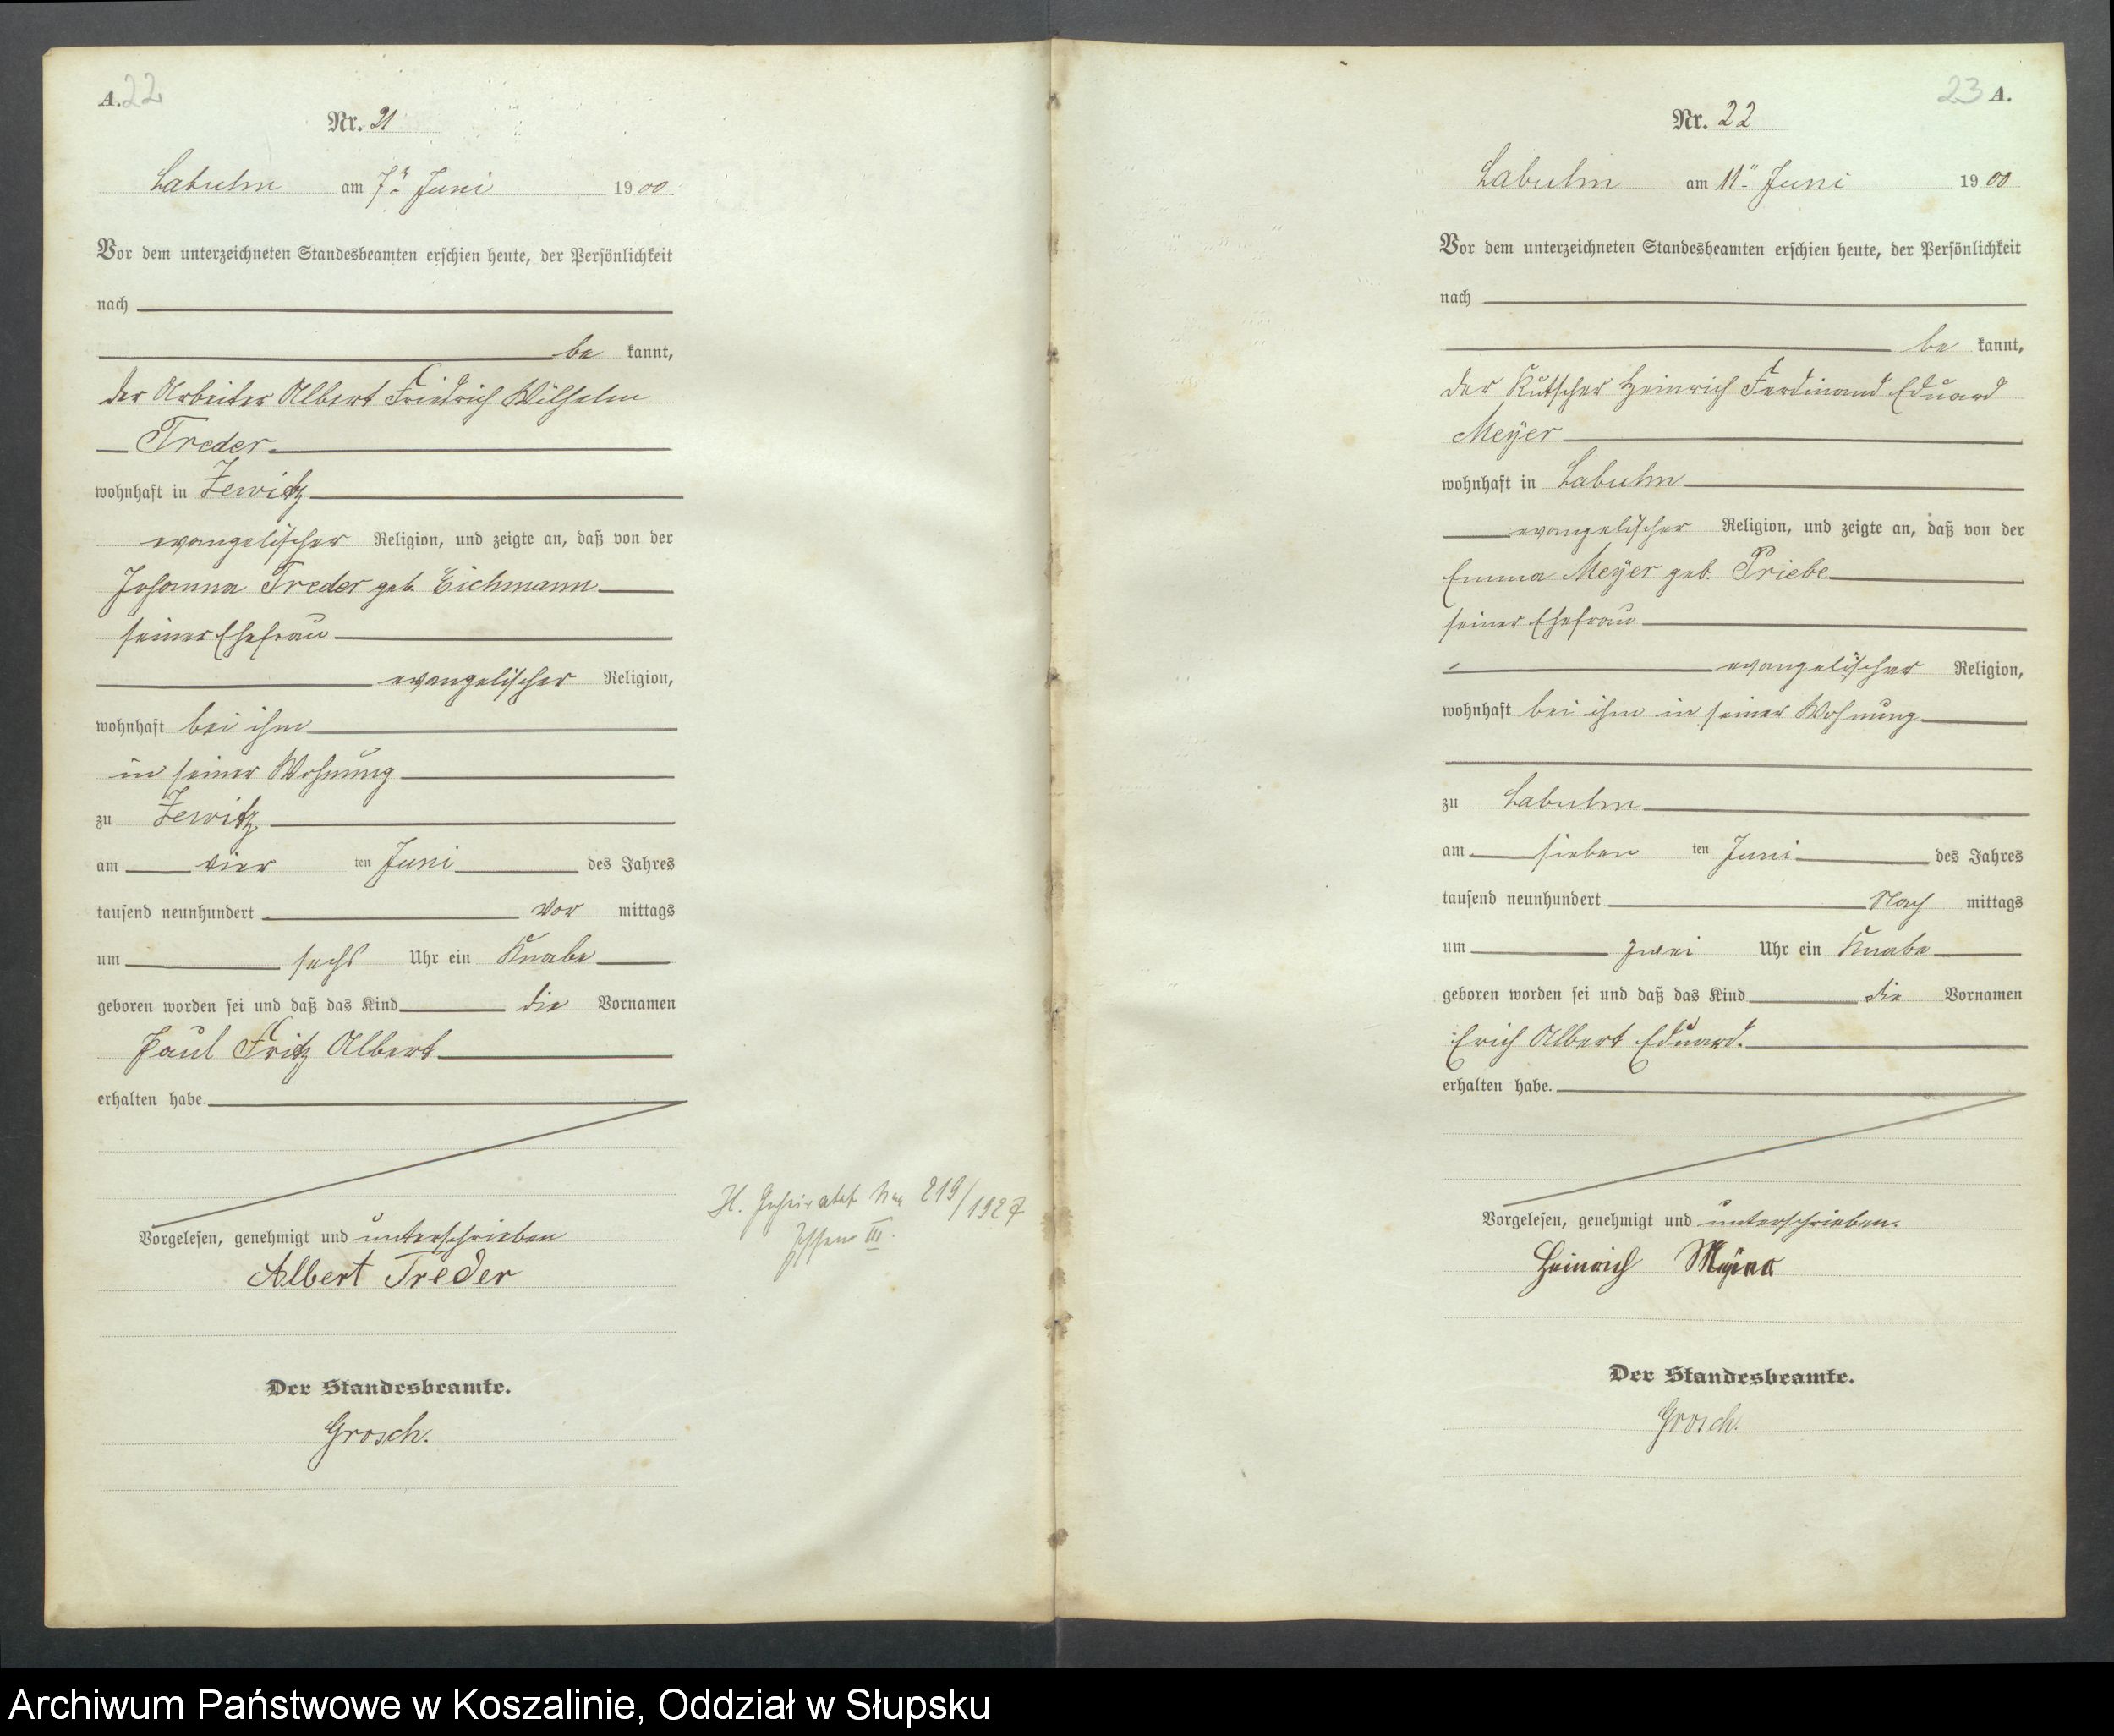 A. 22
Nr. 21
Labuhn am 7. Juni 1900.
Vor dem unterzeichneten Standesbeamten erschien heute, der Persönlichkeit
nach
be kannt,
der Arbeiter Albert Friedrich Wilhelm
Treder
wohnhaft in Zewitz
evangelischer Religion, und zeigte an, daß von der
Johanna Treder geb. Eichmann
seiner Ehefrau
evangelischer Religion,
wohnhaft bei ihm
in seiner Wohnung
zu Zewitz
am vier ten Juni des Jahres
tausend neunhundert Vor mittags
um sechs Uhr ein Knabe
geboren worden sei und daß das Kind die Vornamen
Paul Fritz Albert
erhalten habe.
Vorgelesen, genehmigt und unterschrieben
Albert Treder
Der Standesbeamte.
Grosch.
H. Geheiratet 219/1927
Essen III.
23 A.
Nr. 22
Labuhn am 11. Juni 1900
Vor dem unterzeichneten Standesbeamten erschien heute, der Persönlichkeit
nach
be kannt,
der Kutscher Heinrich Ferdinand Eduard
Meyer
wohnhaft in Labuhn
evangelischer Religion, und zeigte an, daß von der
Emma Meyer geb. Priebe
seiner Ehefrau
evangelischer Religion,
wohnhaft bei ihm in seiner Wohnung
zu Labuhn
am sieben ten Juni des Jahres
tausend neunhundert Nach mittags
um zwei Uhr ein Knabe
geboren worden sei und daß das Kind die Vornamen
Erich Albert Eduard.
erhalten habe.
Vorgelesen, genehmigt und unterschrieben.
Heinrich Meyer
Der Standesbeamte.
Grosch.
Archiwum Państwowe w Koszalinie, Oddział w Słupsku